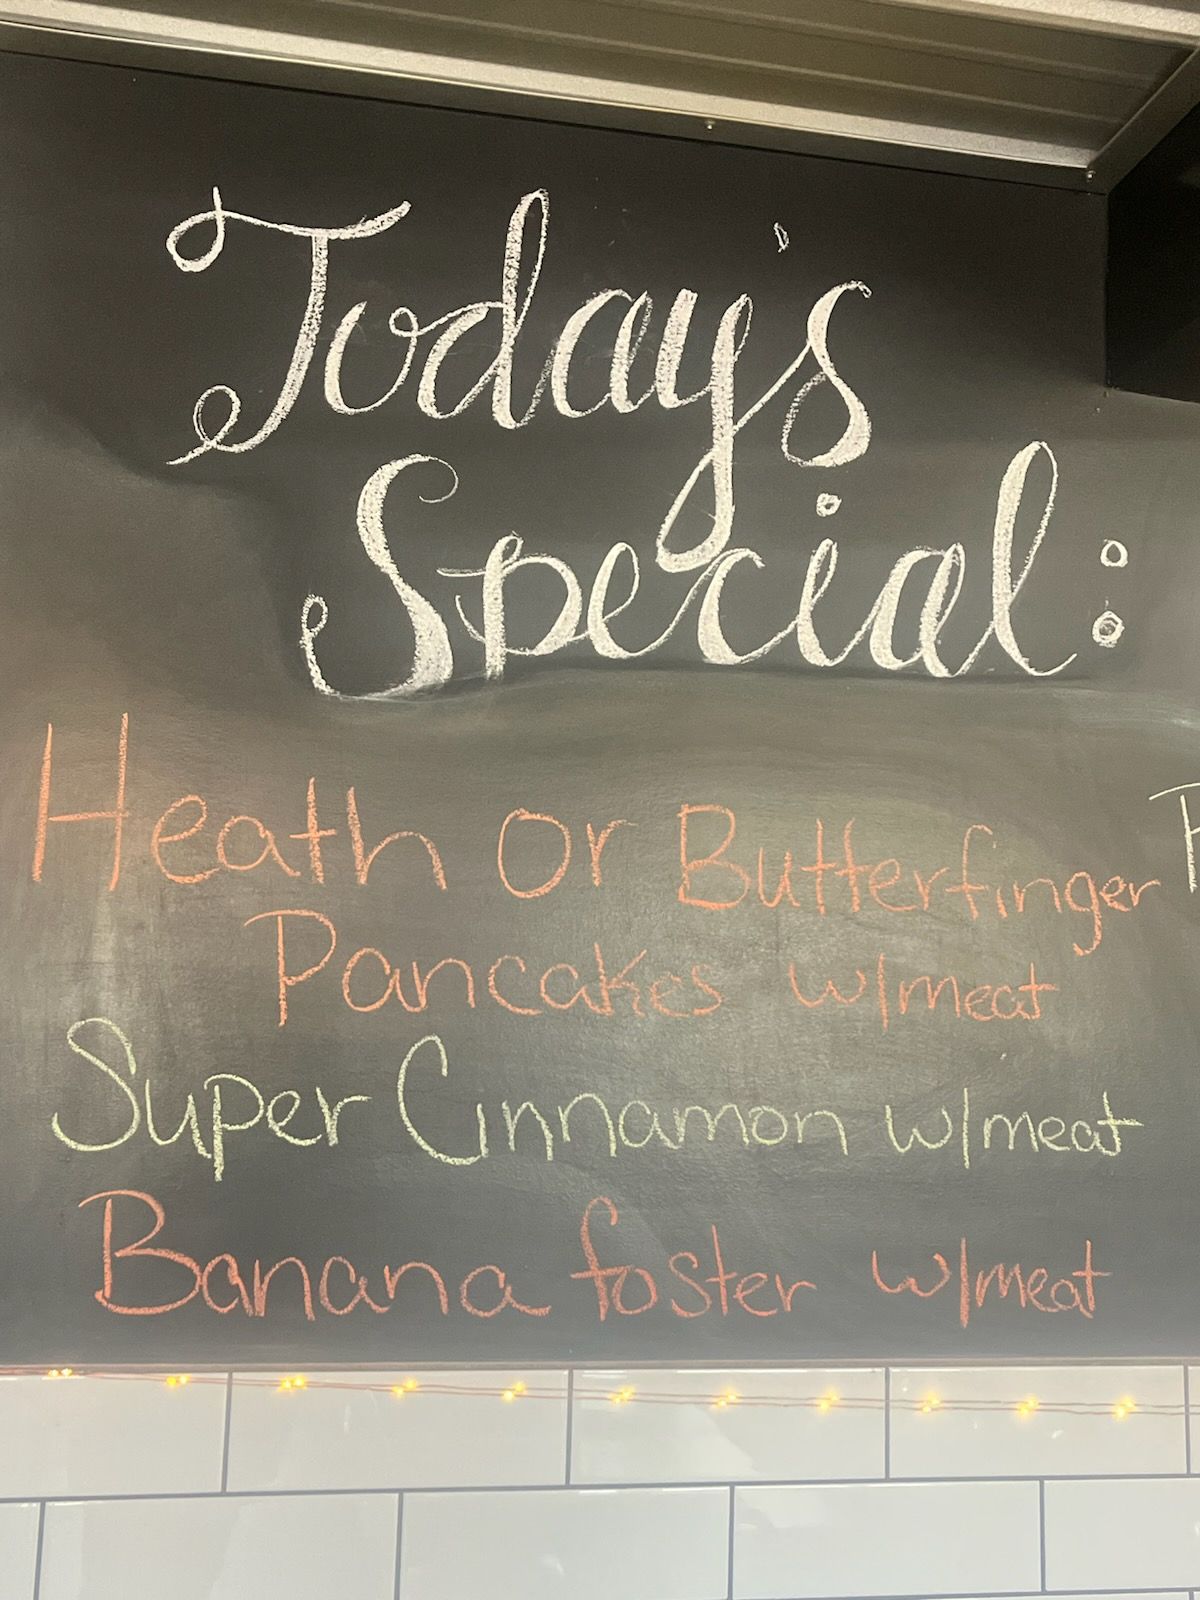 Today's
Special:
Heath Or Butterfinger
Pancakes w/meat
Super Cinnamon w/meat
Banana foster w/meat